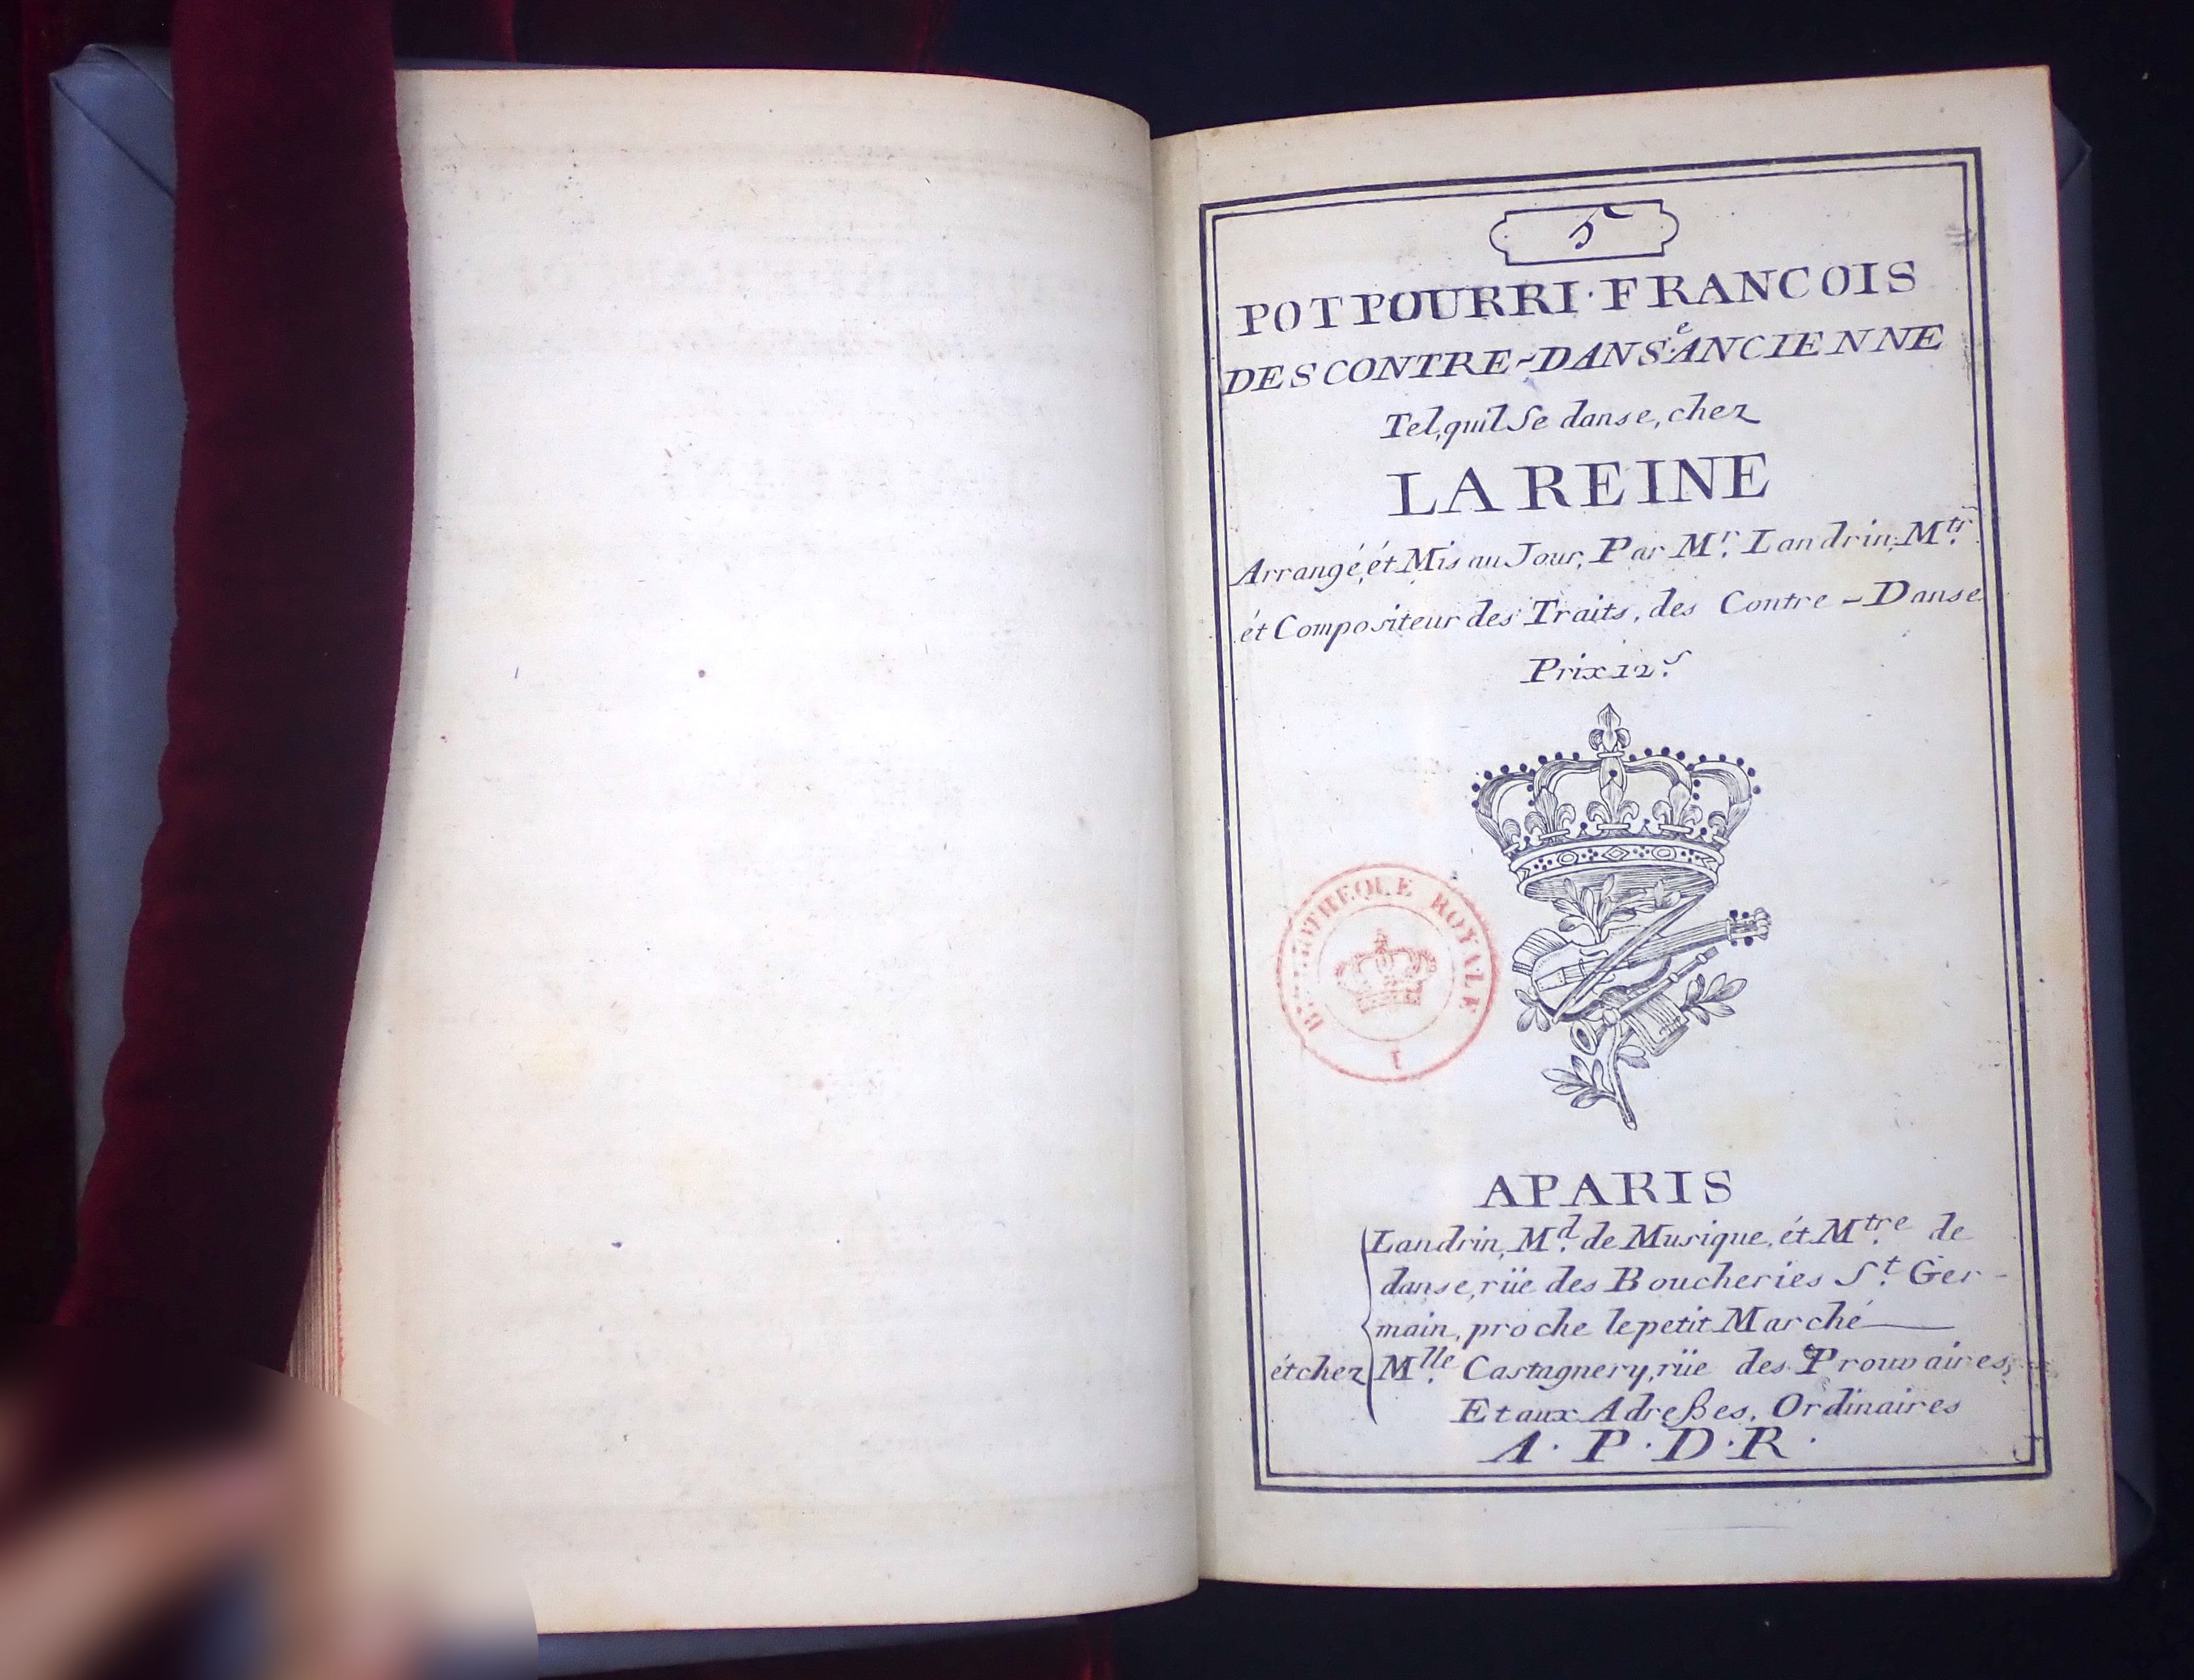 5
POTPOURRI·FRANCOIS
DES CONTRE-DANSe ANCIENNE
Tel, quil Se danse, chez
LA REINE
Arrangé, ét Mis au Jour, Par Mr. Landrin, Mtr.
ét Compositeur des Traits, des Contre-Danse
Prix 12.s
BIBLIOTHEQUE ROYALE
1
A PARIS
Landrin, Md. de Musique, ét Mtre. de
danse, rüe des Boucheries St. Ger-
main, proche le petit Marché
ét chez Mlle. Castagnery, rüe des Prouvaires;
Et aux Adreßes, Ordinaires
A·P·D·R·